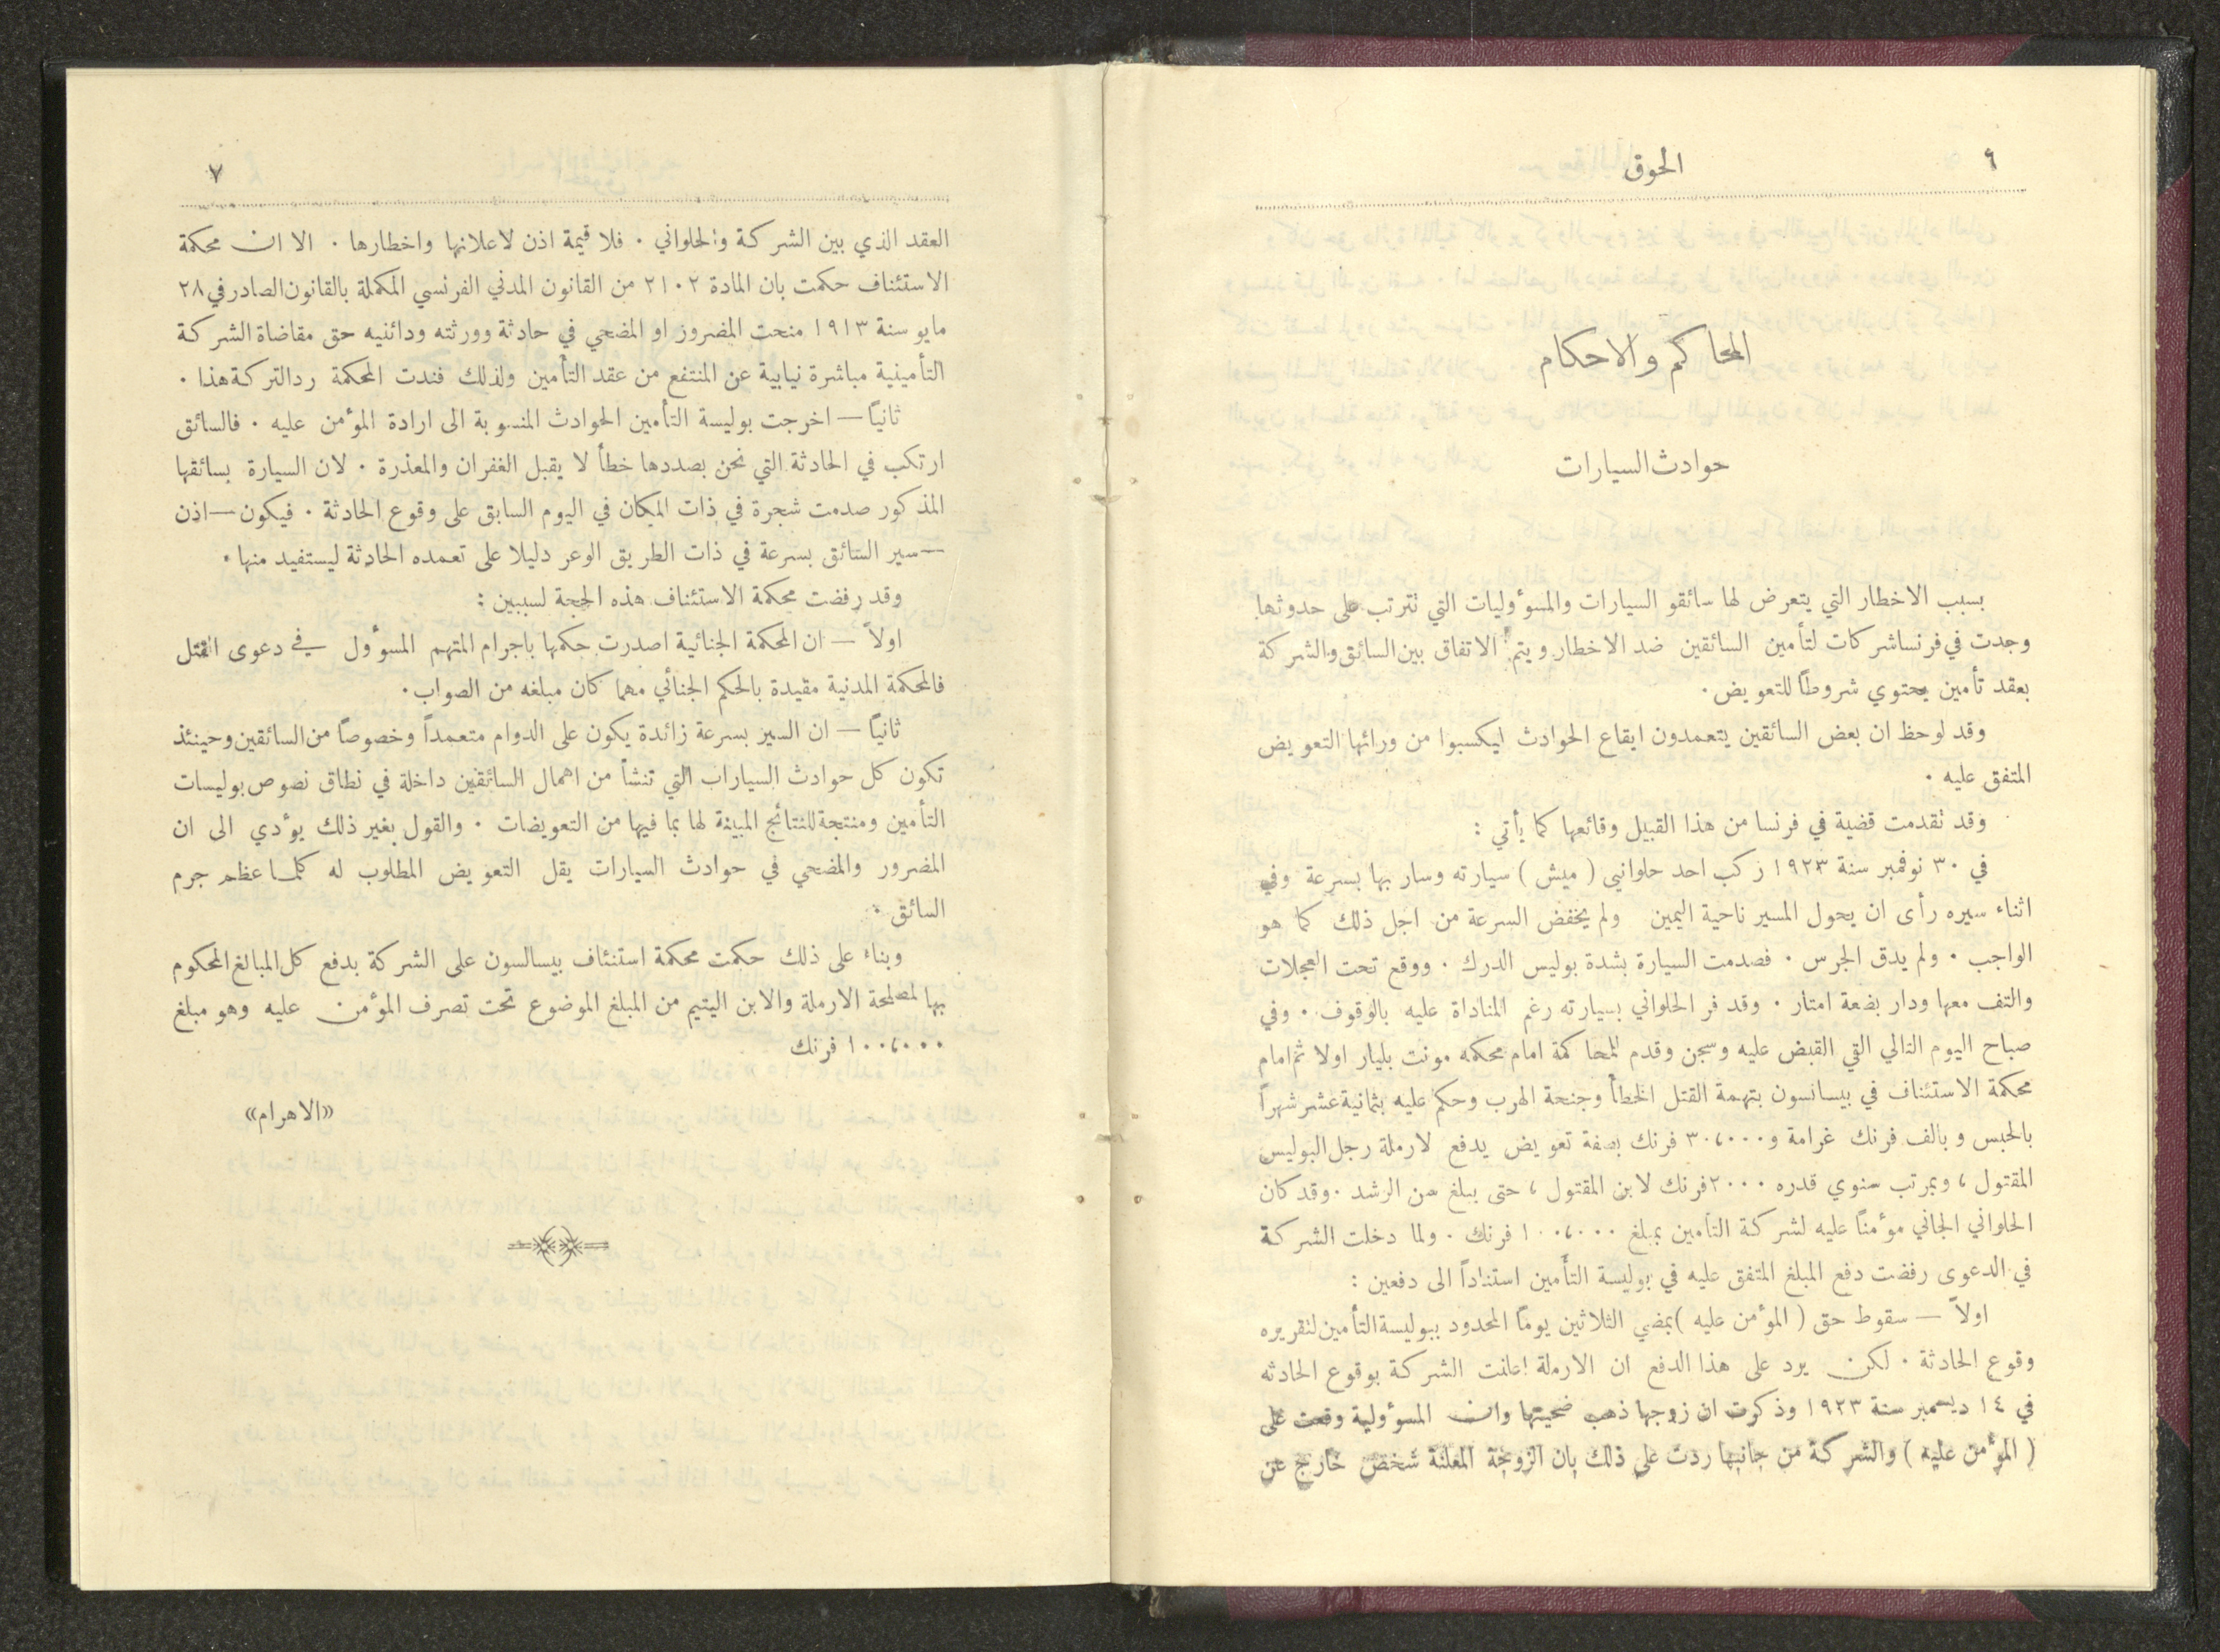 ٦
الحقوق
المحاكم والاحكام
حوادث السيارات
بسبب الاخطار التي يتعرض لها سائقو السيارات والمسؤوليات التي تترتب على حدوثها
وجدت في فرنسا شركات لتأمين السائقين ضد الاخطار ويتم الاتفاق بين السائق والشركة
بعقد تأمين يحتوي شروطاً للتعويض .
وقد لوحظ ان بعض السائقين يتعمدون ايقاع الحوادث ليكسبوا من ورائها التعويض
المتفق عليه .
وقد تقدمت قضية في فرنسا من هذا القبيل وقائعها كما يأتي :
في ٣٠ نوفمبر سنة ١٩٢٣ ركب احد حلوانيي ( ميش ) سيارته وسار بها بسرعة وفي
اثناء سيره رأى ان يحول المسير ناحية اليمين ولم يخفض السرعة من اجل ذلك كما هو
الواجب . ولم يدق الجرس . فصدمت السيارة بشدة بوليس الدرك . ووقع تحت العجلات
والتف معها ودار بضعة امتار . وقد فر الحلواني بسيارته رغم المناداة عليه بالوقوف . وفي
صباح اليوم التالي القي القبض عليه وسجن وقدم للمحاكمة امام محكمه مونت بليار اولا ثم امام
محكمة الاستئناف في بيسانسون بتهمة القتل الخطأ وجنحة الهرب وحكم عليه بثمانية عشر شهراً
بالحبس وبالف فرنك غرامة و٣٠،٠٠٠ فرنك بصفة تعويض يدفع لارملة رجل البوليس
المقتول ، وبمرتب سنوي قدره ٢٠٠٠ فرنك لابن المقتول ، حتى يبلغ سن الرشد . وقد كان
الحلواني الجاني مؤمناً عليه لشركة التأمين بمبلغ ١٠٠،٠٠٠ فرنك . ولما دخلت الشركة
في الدعوى رفضت دفع المبلغ المتفق عليه في بوليسة التأمين استناداً الى دفعين :
اولاً — سقوط حق ( المؤمن عليه ) بمضي الثلاثين يوماً المحدود ببوليسة التأمين لتقريره
وقوع الحادثة . لكن يرد على هذا الدفع ان الارملة اعلنت الشركة بوقوع الحادثه
في ١٤ ديسمبر سنة ١٩٢٣ وذكرت ان زوجها ذهب ضحيتها وان المسؤولية وقعت على
( المؤمن عليه ) والشركة من جانبها ردت على ذلك بان الزوجة المعلنة شخص خارج عن
٧
العقد الذي بين الشركة والحلواني . فلا قيمة اذن لاعلانها واخطارها . الا ان محكمة
الاستئناف حكمت بان المادة ٢١٠٢ من القانون المدني الفرنسي المكملة بالقانون الصادر في ٢٨
مايو سنة ١٩١٣ منحت المضروز او المضحي في حادثة وورثته ودائنيه حق مقاضاة الشركة
التأمينية مباشرة نيابية عن المنتفع من عقد التأمين ولذلك فندت المحكمة رد التركة هذا .
ثانياً — اخرجت بوليسة التأمين الحوادث المنسوبة الى ارادة المؤمن عليه . فالسائق
ارتكب في الحادثة التي نحن بصددها خطأ لا يقبل الغفران والمعذرة . لان السيارة بسائقها
المذكور صدمت شجرة في ذات المكان في اليوم السابق على وقوع الحادثة . فيكون — اذن
— سير السائق بسرعة في ذات الطريق الوعر دليلا على تعمده الحادثة ليستفيد منها .
وقد رفضت محكمة الاستئناف هذه الحجة لسببين :
اولاً — ان المحكمة الجنائية اصدرت حكمها باجرام المتهم المسؤول في دعوى القتل
فالمحكمة المدنية مقيدة بالحكم الجنائي مهما كان مبلغه من الصواب .
ثانياً — ان السير بسرعة زائدة يكون على الدوام متعمداً وخصوصاً من السائقين وحينئذ
تكون كل حوادث السياراب التي تنشأ من اهمال السائقين داخلة في نطاق نصوص بوليسات
التأمين ومنتجة للنتائج المبينة لها بما فيها من التعويضات . والقول بغير ذلك يؤدي الى ان
المضرور والمضحي في حوادث السيارات يقل التعويض المطلوب له كلما عظم جرم
السائق .
وبناء على ذلك حكمت محكمة استئناف بيسالسون على الشركة بدفع كل المبالغ المحكوم
بها لمصلحة الارملة والابن اليتيم من المبلغ الموضوع تحت تصرف المؤمن عليه وهو مبلغ
١٠٠،٠٠٠ فرنك
«الاهرام»